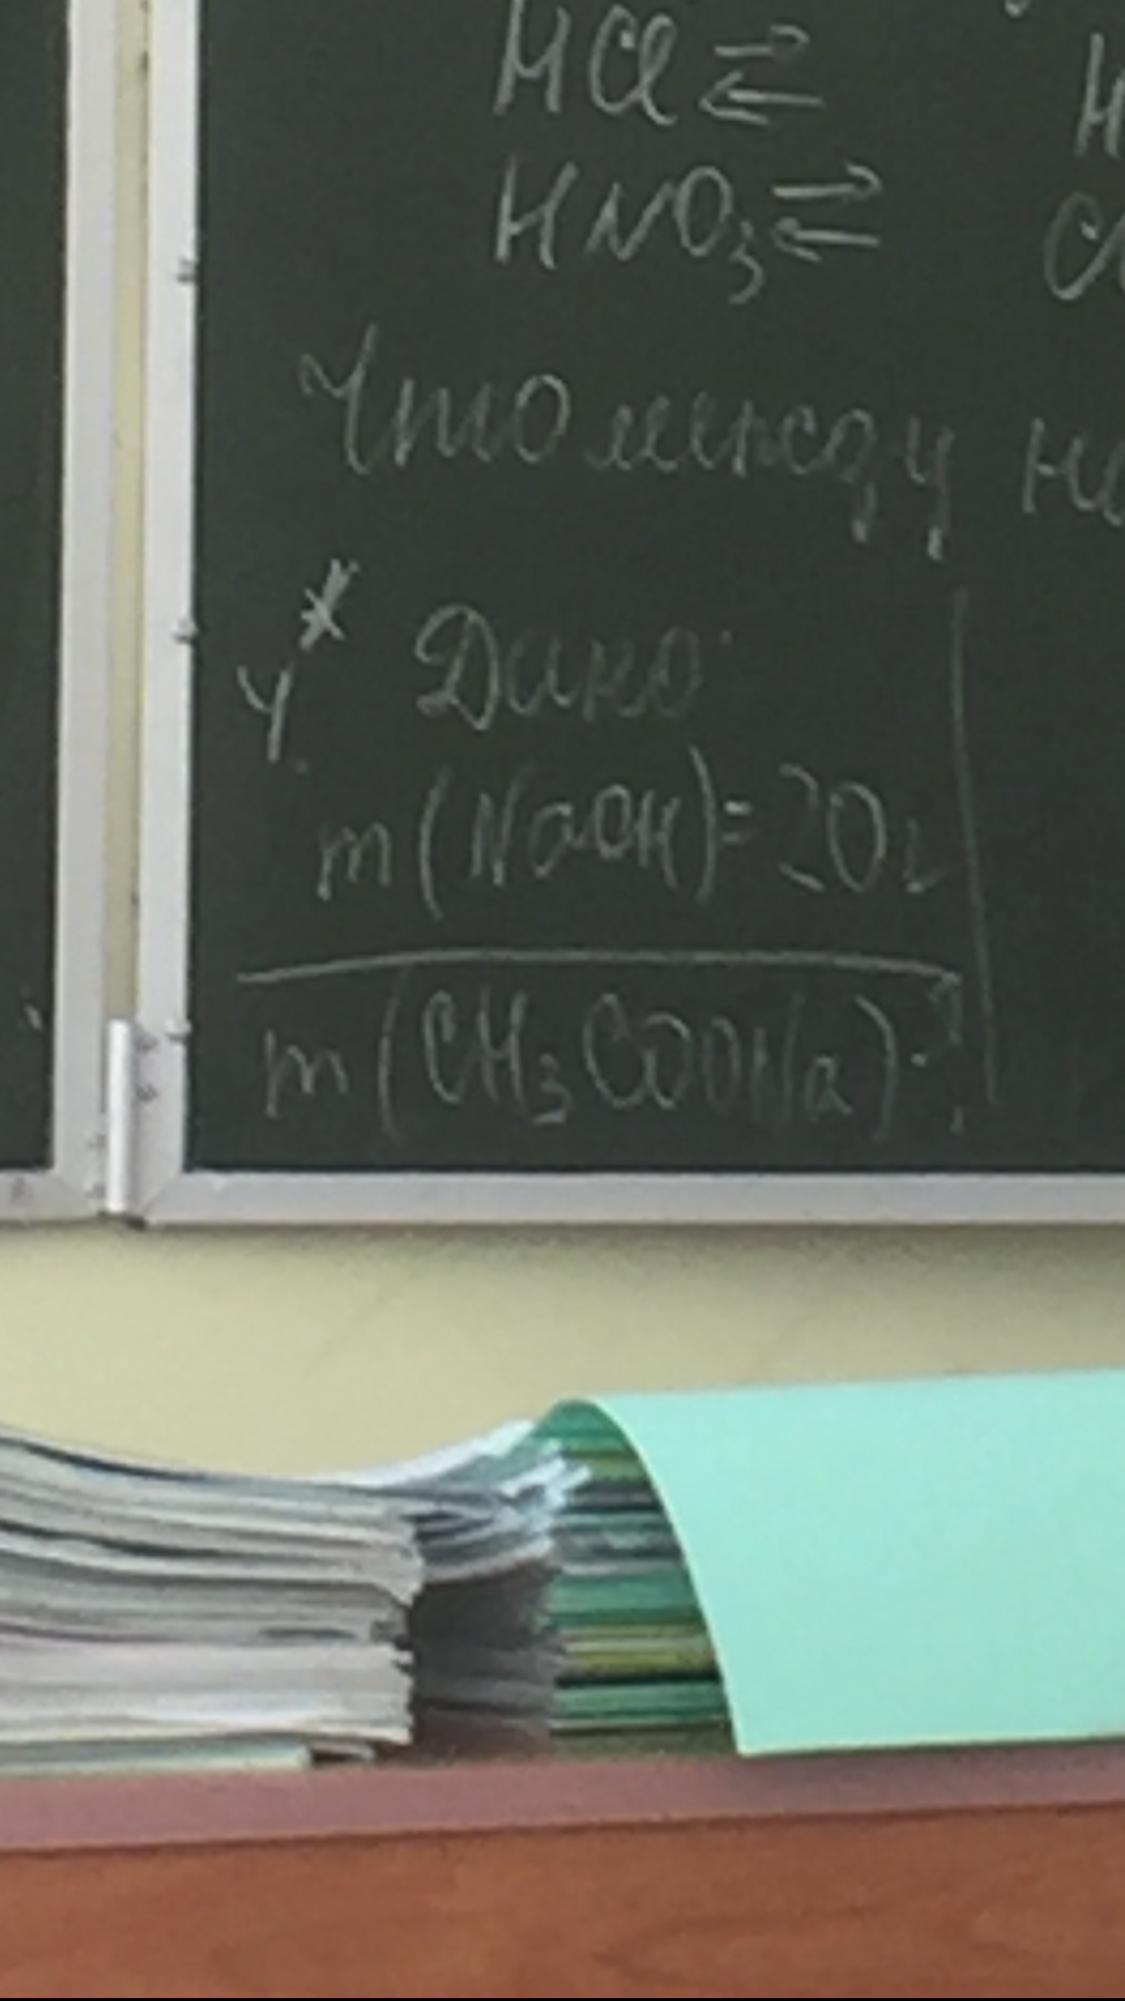 HCl ⇄ H
HNO₃ ⇄
Что между
4* Дано:
m(NaOH)=20г
m(CH₃COONa)-?